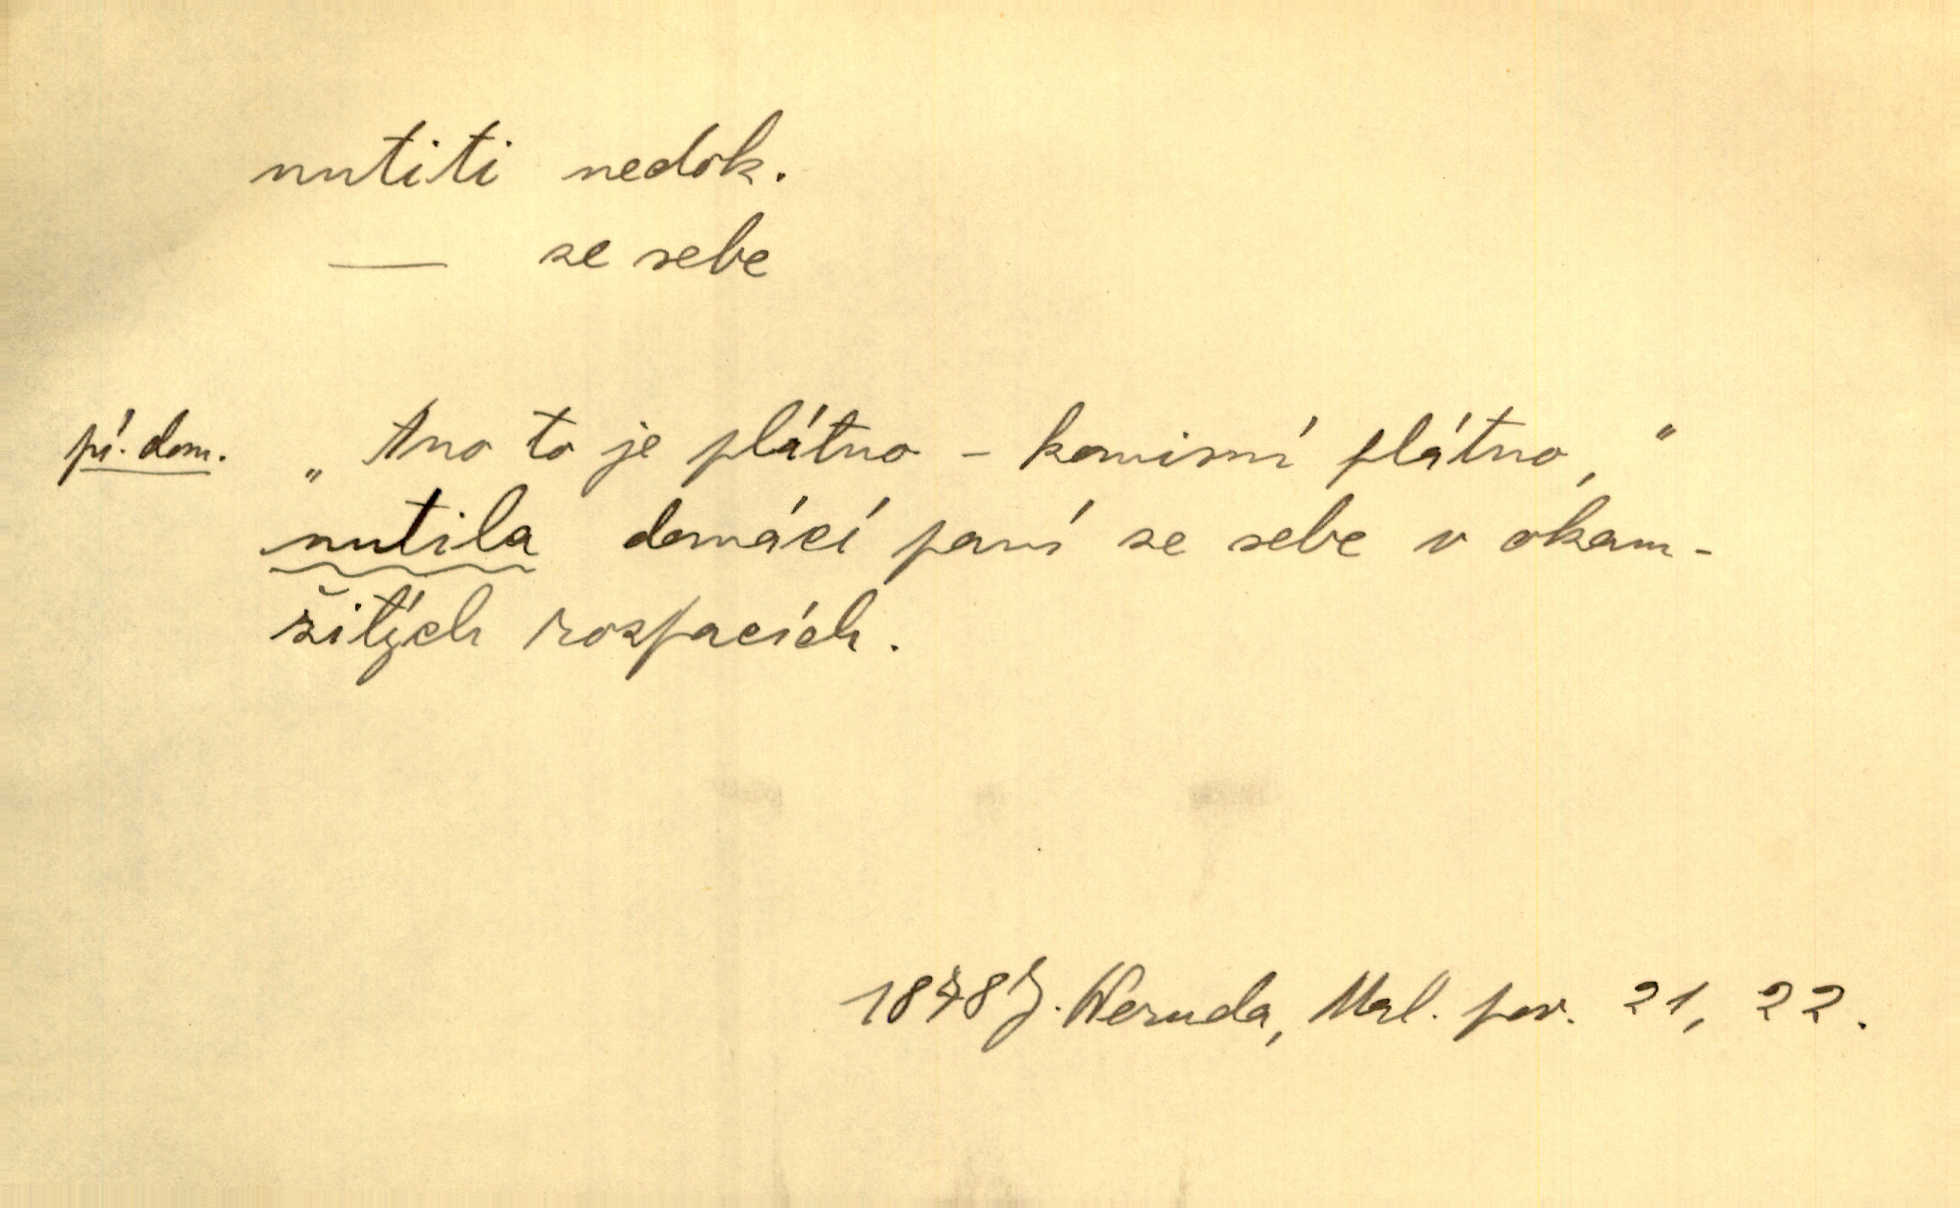 nutiti nedok.
— se sebe
pí. dom. „Ano to je plátno – komisní plátno,“
nutila domácí paní se sebe v okam-
žitých rozpacích.
1878 J. Neruda, Mal. pov. 21, 22.